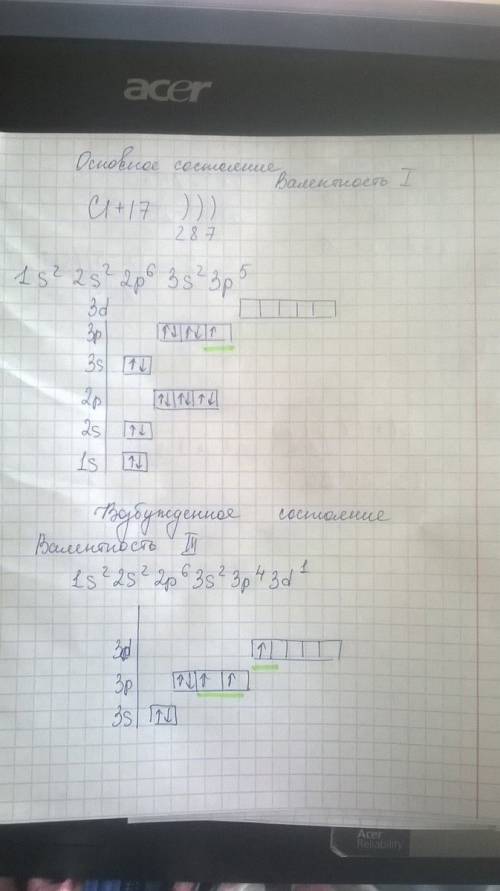 acer
Основное состояние
Валентность I
Cl +17 )))
2 8 7
1s² 2s² 2p⁶ 3s² 3p⁵
3d
3p ↑↓ ↑↓ ↑
3s ↑↓
2p ↑↓ ↑↓ ↑↓
2s ↑↓
1s ↑↓
Возбужденное состояние
Валентность III
1s² 2s² 2p⁶ 3s² 3p⁴ 3d¹
3d ↑
3p ↑↓ ↑ ↑
3s ↑↓
Acer
Reliability